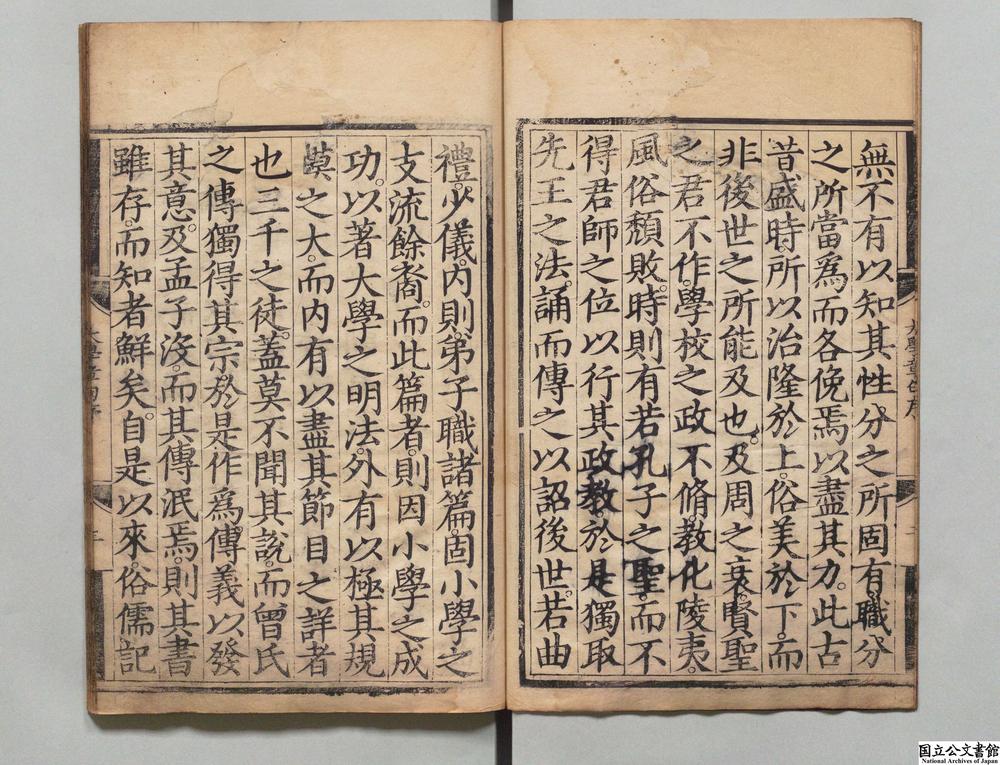 無不有以知其性分之所固有職分
之所當爲而各俛焉以盡其力。此古
昔盛時所以治隆於上。俗美於下。而
非後世之所能及也。及周之衰。賢聖
之君不作。學校之政不脩。教化陵夷。
風俗頹敗。時則有若孔子之聖。而不
得君師之位以行其政教。於是獨取
先王之法。誦而傳之以詔後世。若曲
禮。少儀。内則。弟子職諸篇。固小學之
支流餘裔。而此篇者。則因小學之成
功。以著大學之明法。外有以極其規
模之大。而内有以盡其節目之詳者
也三千之徒。蓋莫不聞其說。而曾氏
之傳獨得其宗。於是作爲傳義以發
其意。及孟子沒。而其傳泯焉。則其書
雖存。而知者鮮矣。自是以來。俗儒記
大學章句序
国立公文書館
National Archives of Japan